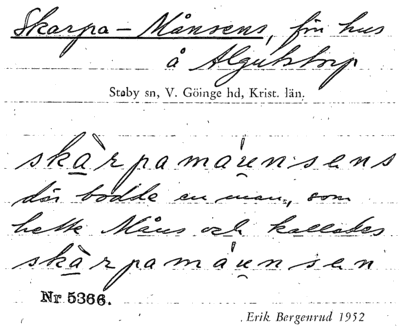 Skarpa-Månsens, fin hus
å Algutstorp
Støby sn, V. Göinge hd, Krist. län.
skàrpamáunsens
där bodde en man, som
hette Måns och kallades
skàrpamáunsen
Nr 5366.
Erik Bergenrud 1952